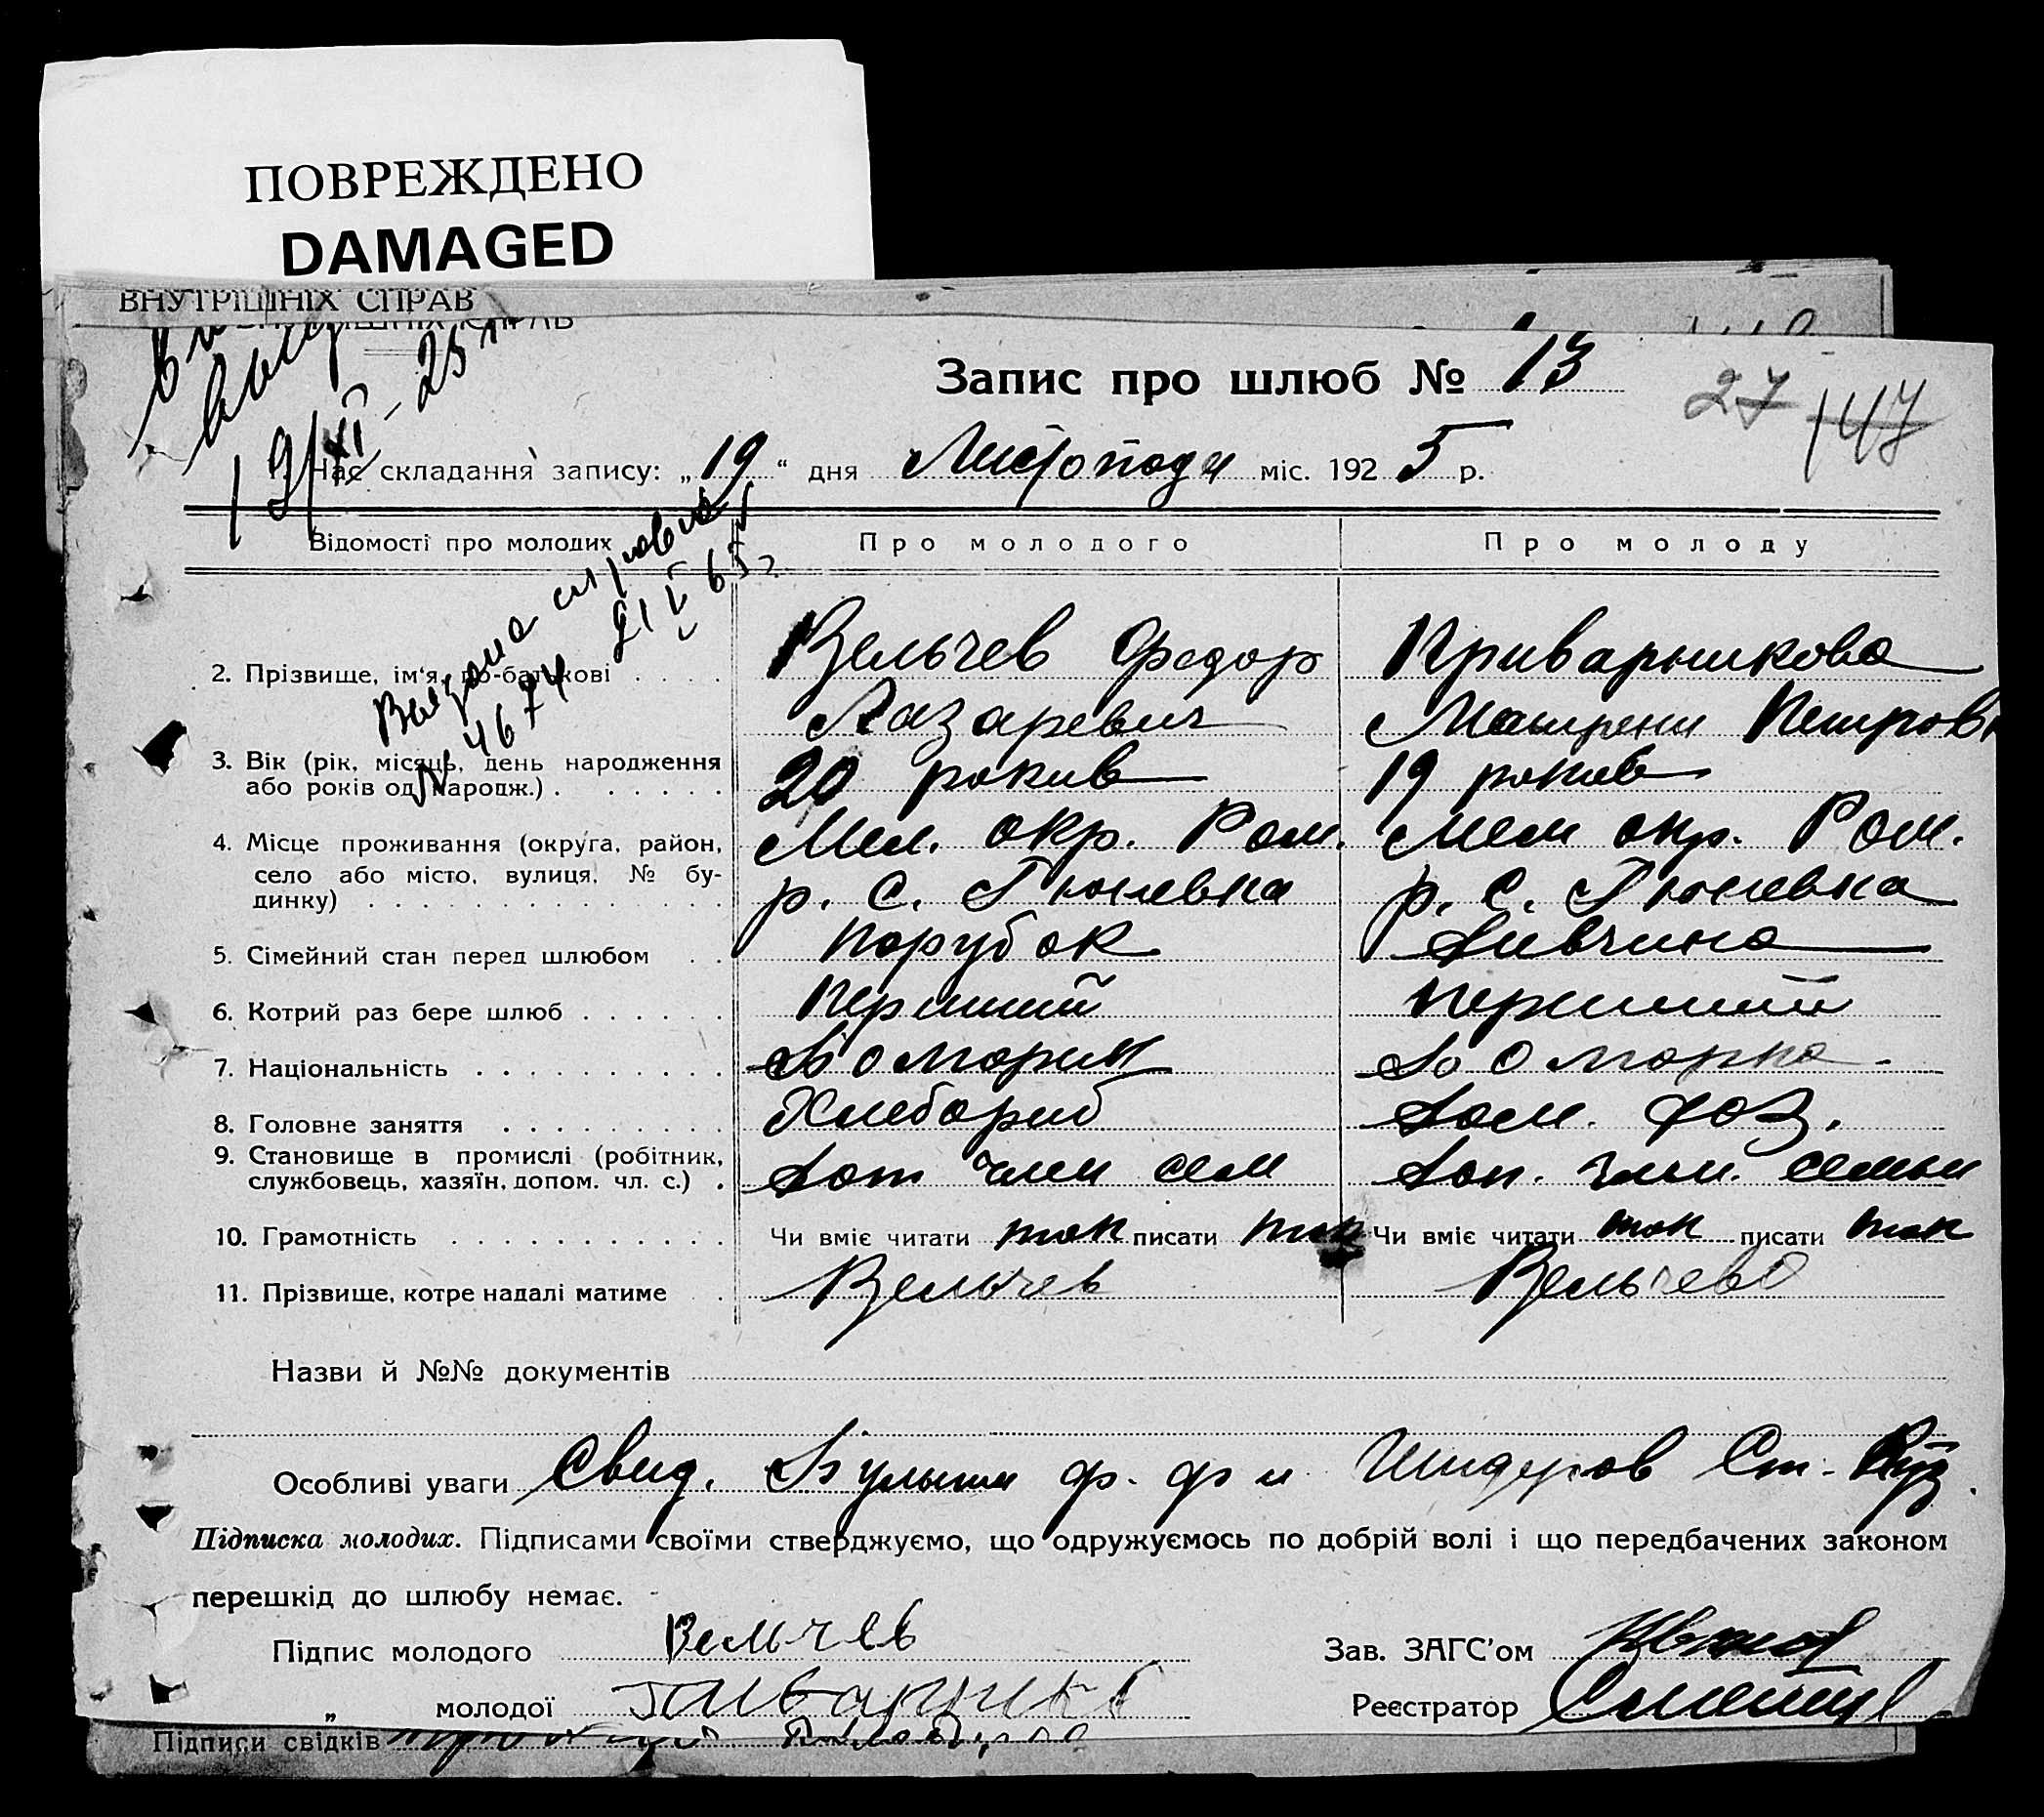 ПОВРЕЖДЕНО
DAMAGED
ВНУТРІШНІХ СПРАВ
Запис про шлюб № 13
27 147
19/XI - 25
Час складання запису: „19“ дня Листопада міс. 1925 р.
Відомості про молодих Про молодого Про молоду
Выдана справка
№ 4674 21 V 65 г
2. Прізвище, ім'я, по-батькові . . . . Вельчев Федор Приварникова
Лазаревич Матрени Петровн
3. Вік (рік, місяць, день народження
або років од народж.) . . . . . . 20 рокив 19 рокив
4. Місце проживання (округа, район, Мел. окр. Ром. Мел окр. Ром.
село або місто, вулиця, № бу- р. С. Гюневка р. С. Гюневка
динку) . . . . . . . . . . . . . .
5. Сімейний стан перед шлюбом . . Парубок Дивчина
6. Котрий раз бере шлюб . . . . . . Перший Перший
7. Національність . . . . . . . . . .
8. Головне заняття . . . . . . . . . Хлебориб Дом. хоз.
9. Становище в промислі (робітник,
службовець, хазяїн, допом. чл. с.) . Доп член сем Доп. член. семьи
10. Грамотність . . . . . . . . . . . Чи вміє читати так писати так Чи вміє читати так писати так
11. Прізвище, котре надалі матиме . Вельчев Вельчева
Назви й №№ документів
Особливі уваги Свид. ф. ф и Шидеров Ст.
Підписка молодих. Підписами своїми стверджуємо, що одружуємось по добрій волі і що передбачених законом
перешкід до шлюбу немає.
Підпис молодого Вельчев Зав. ЗАГС'ом
„ молодої Реєстратор
Підписи свідків